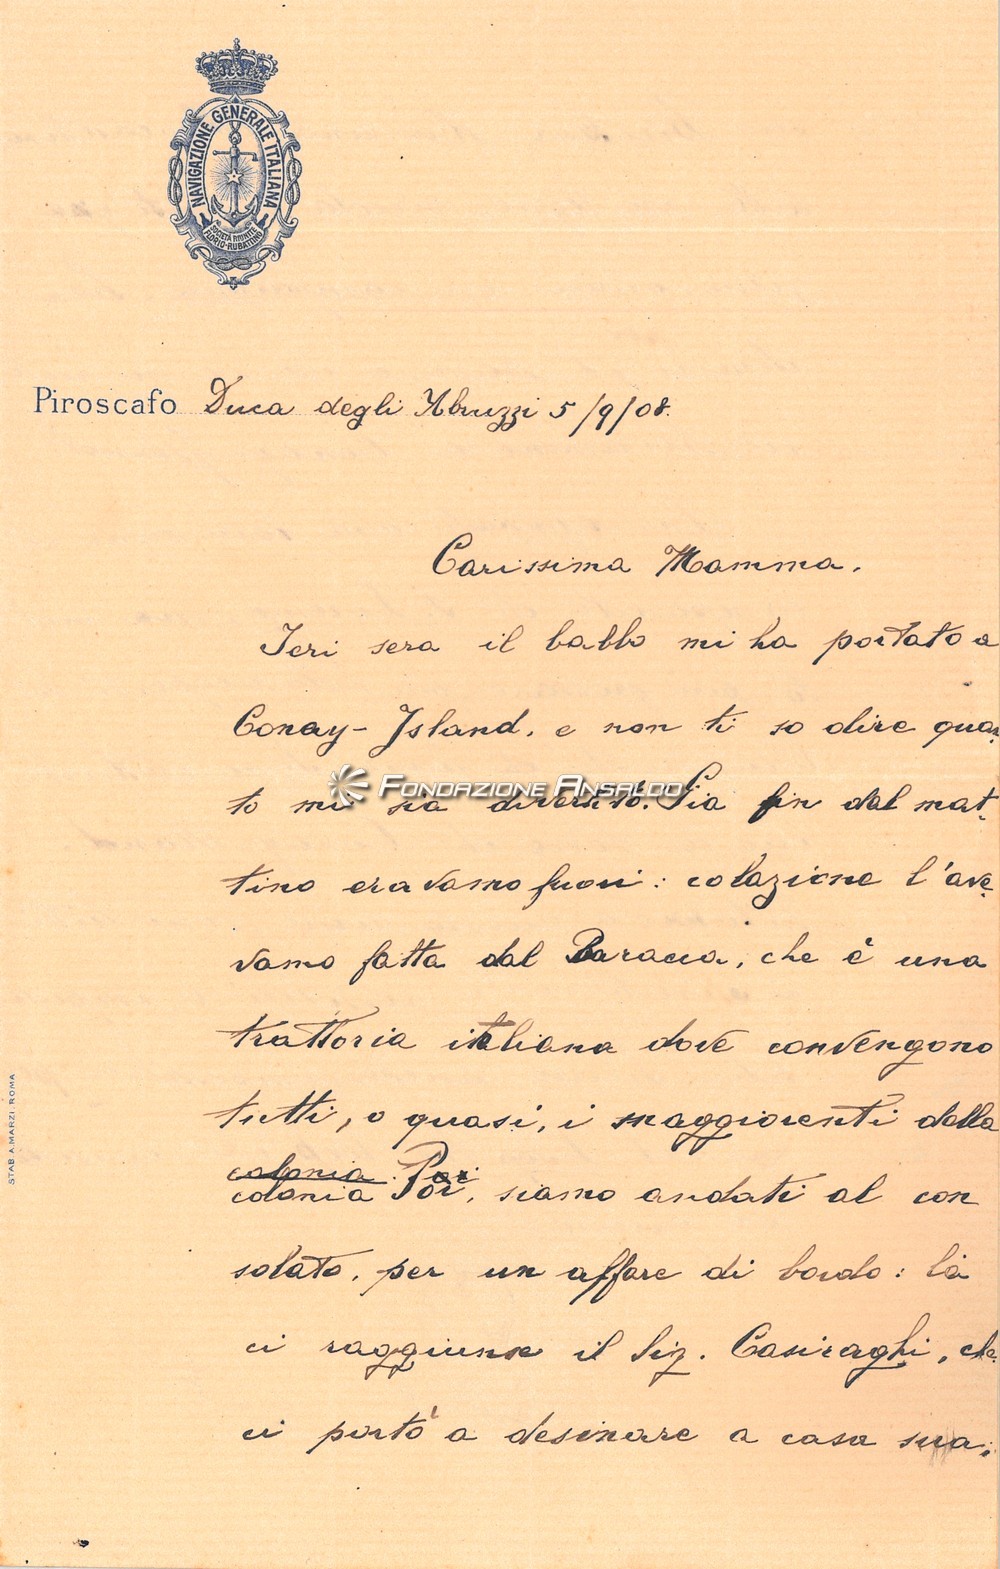 NAVIGAZIONE GENERALE ITALIANA
SOCIETÀ RIUNITE
FLORIO-RUBATTINO
Piroscafo Duca degli Abruzzi 5/9/08.
Carissima Mamma.
Ieri sera il babbo mi ha portato a
Conay-Island, e non ti so dire quan-
to mi sia divertito. Già fin dal mat-
tino eravamo fuori: colazione l'ave-
vamo fatta dal Baracca, che è una
trattoria italiana dove convengono
tutti, o quasi, i maggiorenti della
colonia. Poi
colonia Poi, siamo andati al con
solato, per un affare di bordo: là
ci raggiunse il Sig. Casiraghi, che
ci portò a desinare a casa sua,
FONDAZIONE ANSALDO
STAB. A. MARZI. ROMA